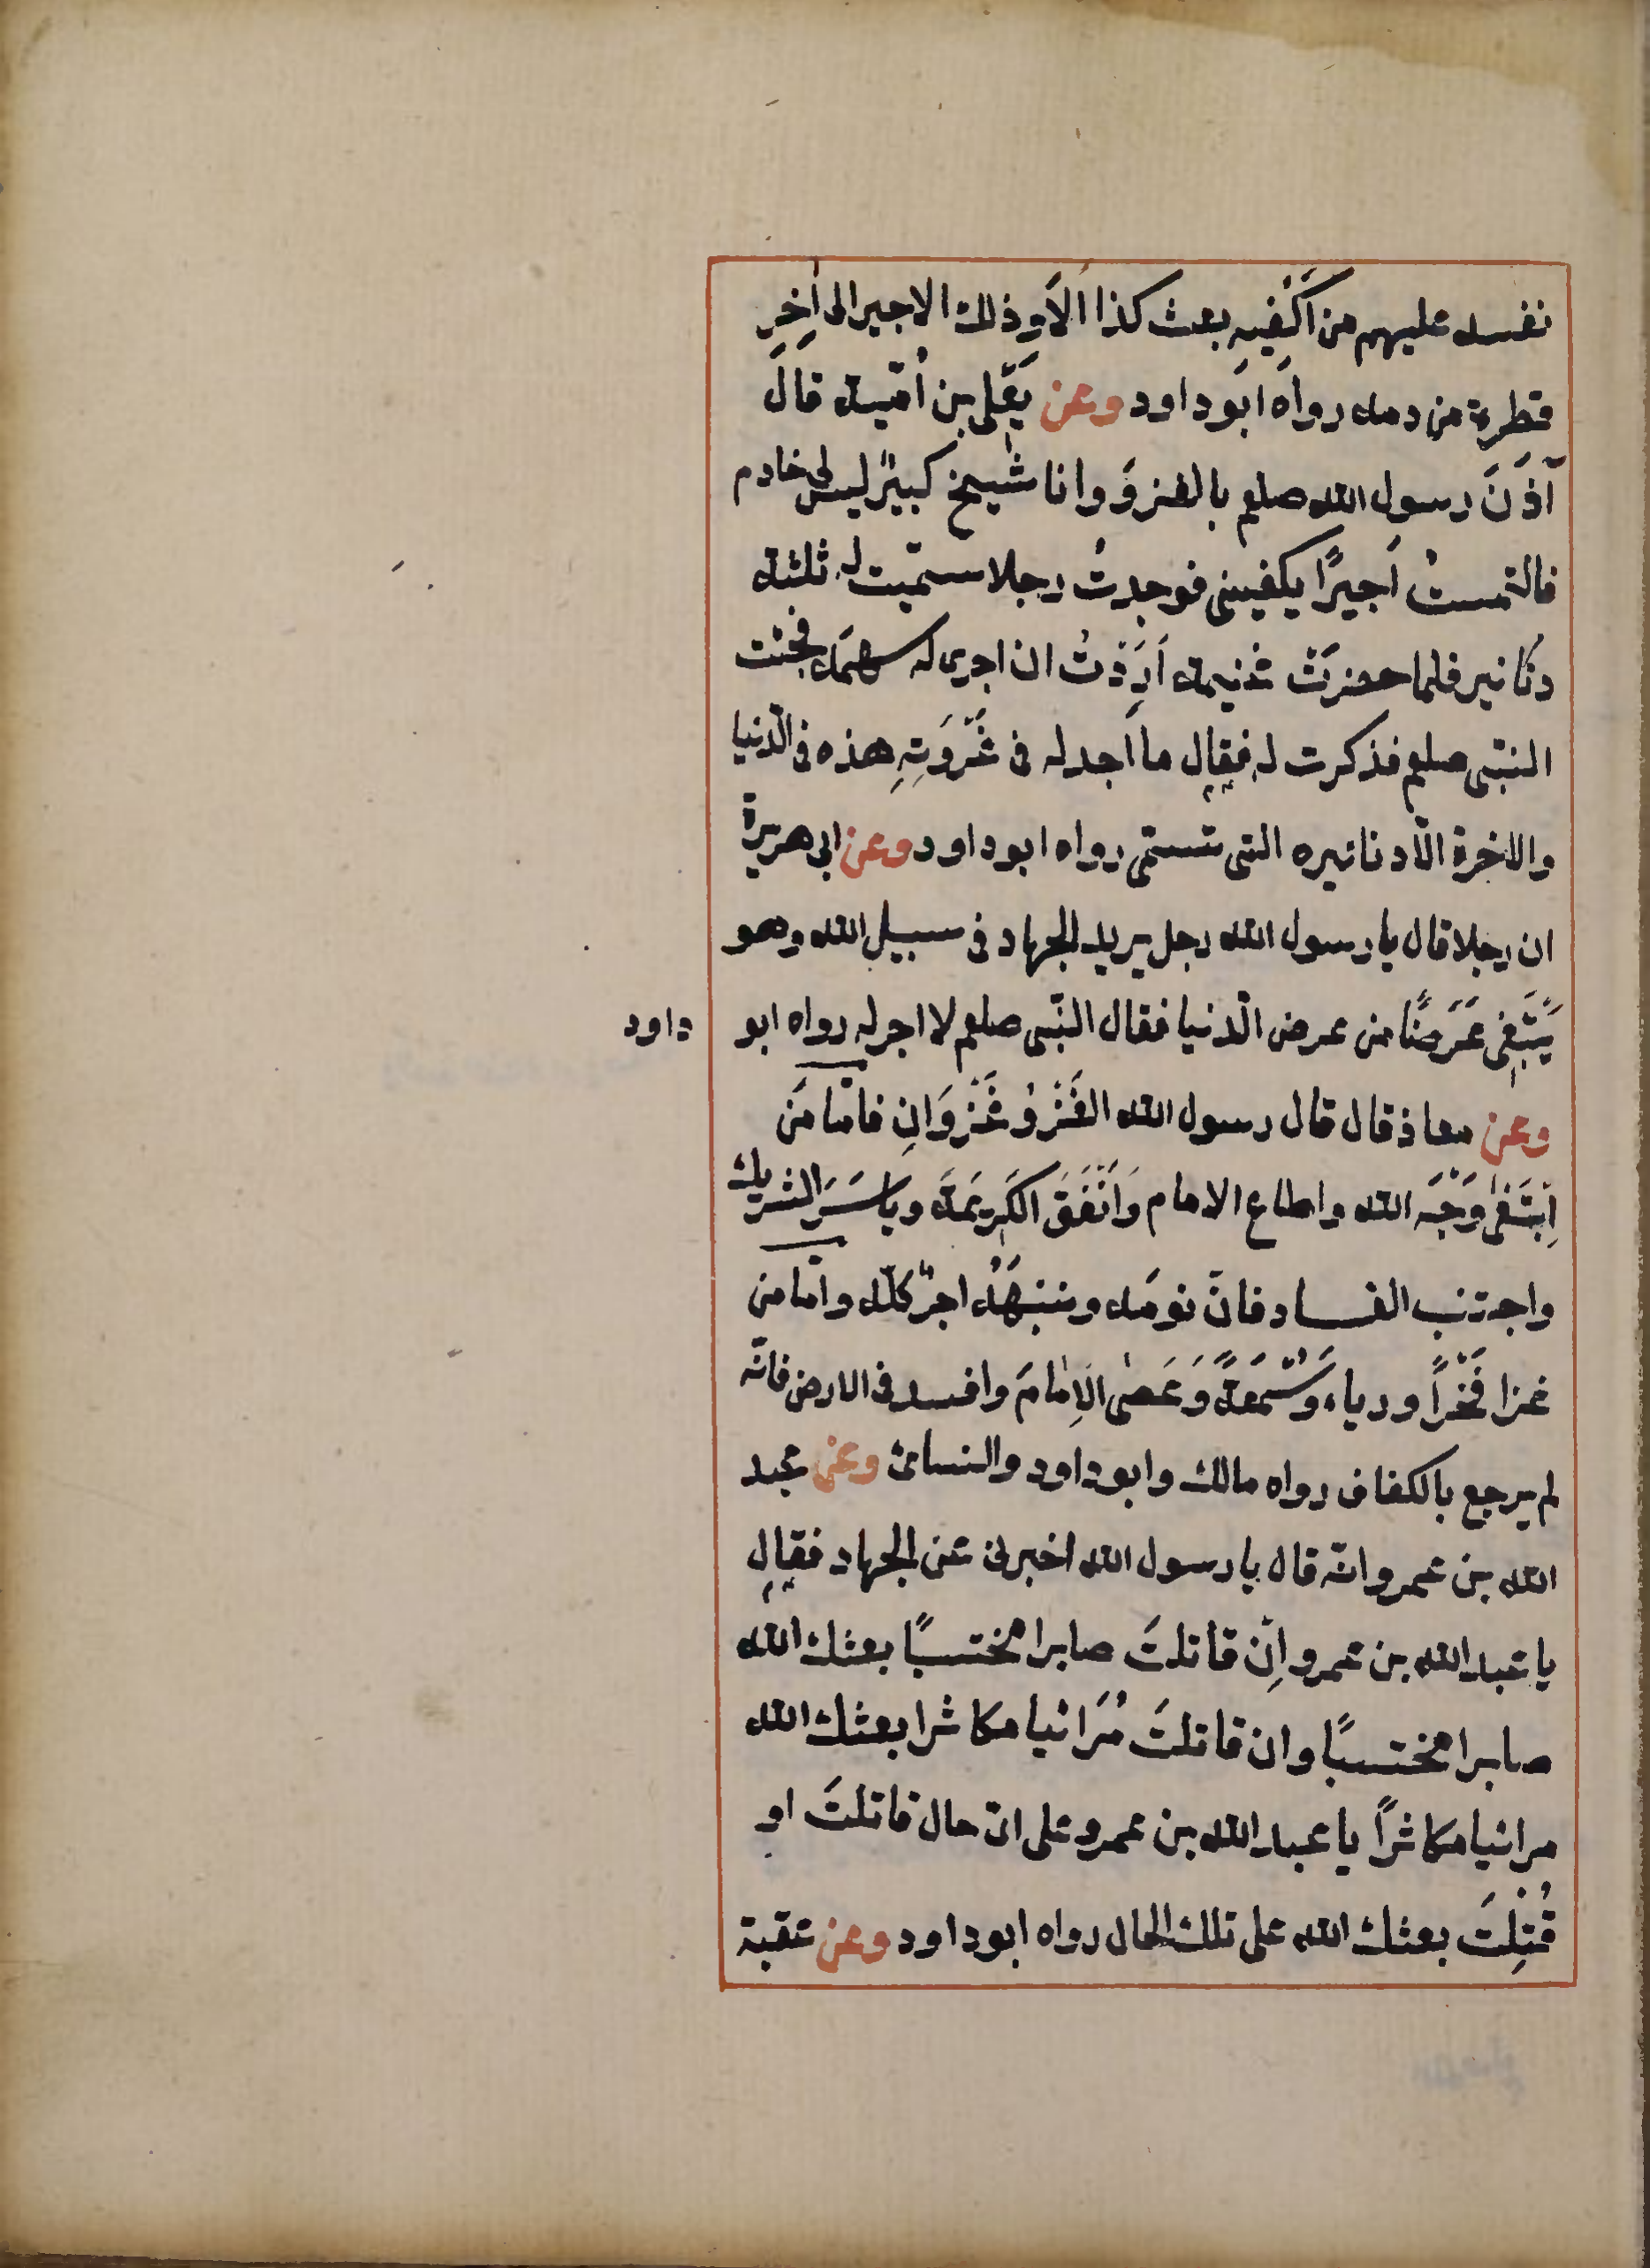 نفسه عليهم من اَكْفِيهِ بعث كذا اَلَا وذلك الاجير الى اٰخِرِ
قطرة من دمه رواه ابو داود وعن يَعْلى بن اُميه قالَ
آذَنَ رسول الله صلعم بالغزوَ وانا شيخ كبيرٌ ليس لى خادم
فالتمستُ اَجيرًا يكفينى فوجدتُ رجلا سمّيت له ثلثة
دنانير فلما حضرَتْ غنيمة اَرَدْتُ ان اجرى له سهمَه فجئت
النبّى صلعم فذكرت له فقال ما اجد له فى غَزْوَتِهِ هذه فى الدّنيا
والاخرة الّا دنانيره التى تسمّى رواه ابو داود وعن ابى هريرة
ان رجلا قال يا رسول الله رجل يريد الجهاد فى سبيل الله وهو
يَبْتَغِى عَرَضًا من عرض الّدنيا فقال النبّى صلعم لا اجر له رواه ابو داود
وعن معاذ قال قال رسول الله الغَزْوُ غَزْوَانِ فامّا مَن
اِبْتَغىٰ وَجْهَ الله واطاع الامام وَاَنْفَقَ الكَرِيمَةَ وياسَرَ الشريك
واجتنب الفساد فانّ نومَه ونبهَهُ اجرٌ كلّه وامّا من
غزا فَخْرًا ورياء وَسُمْعَةً وَعَصٰى الاِمٰامَ وافسد فى الارض فانّه
لم يرجع بالكفاف رواه مالك وابو داود والنسائ وعن عبد
الله بن عمرو انّه قال يا رسول الله اخبرنى عن الجهاد فقال
يا عبد الله بن عمرو اِنْ قاتلتَ صابرا محتسبًا بعثك الله
صابرا محتسبًا وان قاتلتَ مُرَائيا مكاثرا بعثك الله
مرائيا مكاثراً يا عبد الله بن عمرو على اىّ حال قاتلتَ او
قُتِلْتَ بعثك الله على تلك الحال رواه ابو داود وعن عقبة